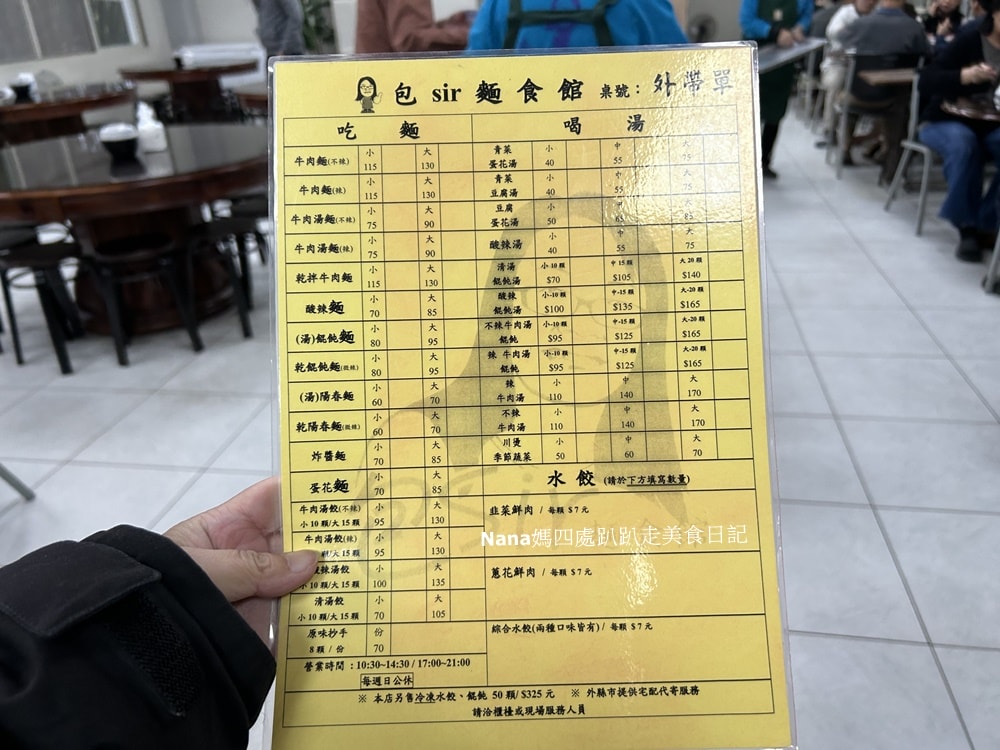 包 sir 麵食館 桌號： 外帶單
吃 麵
牛肉麵(不辣) 小 115 大 130
牛肉麵(辣) 小 115 大 130
牛肉湯麵(不辣) 小 75 大 90
牛肉湯麵(辣) 小 75 大 90
乾拌牛肉麵 小 115 大 130
酸辣麵 小 70 大 85
(湯)餛飩麵 小 80 大 95
乾餛飩麵(微辣) 小 80 大 95
(湯)陽春麵 小 60 大 70
乾陽春麵(微辣) 小 60 大 70
炸醬麵 小 70 大 85
蛋花麵 小 70 大 85
牛肉湯餃(不辣) 小 10 顆/大 15 顆 小 95 大 130
牛肉湯餃(辣) 顆/大 15 顆 小 95 大 130
辣湯餃 小 10 顆/大 15 顆 小 100 大 135
清湯餃 小 10 顆/大 15 顆 小 70 大 105
原味抄手 8 顆 / 份 份 70
營業時間：10:30~14:30 / 17:00~21:00
每週日公休
喝 湯
青菜蛋花湯 小 40 中 55 大 75
青菜豆腐湯 小 40 中 55 大 75
豆腐蛋花湯 小 50 中 65 大 85
酸辣湯 小 40 中 55 大 75
清湯餛飩湯 小-10 顆 $70 中 15 顆 $105 大 20 顆 $140
酸辣餛飩湯 小-10 顆 $100 中-15 顆 $135 大-20 顆 $165
不辣牛肉湯餛飩 小-10 顆 $95 中-15 顆 $125 大-20 顆 $165
辣 牛肉湯餛飩 小-10 顆 $95 中-15 顆 $125 大-20 顆 $165
辣牛肉湯 小 110 中 140 大 170
不辣牛肉湯 小 110 中 140 大 170
川燙季節蔬菜 小 50 中 60 大 70
水餃 (請於下方填寫數量)
韭菜鮮肉 / 每顆 $7 元
Nana媽四處趴趴走美食日記
蔥花鮮肉 / 每顆 $7 元
綜合水餃(兩種口味皆有) / 每顆 $7 元
※ 本店另售冷凍水餃、餛飩 50 顆/ $325 元 ※ 外縣市提供宅配代寄服務
請洽櫃檯或現場服務人員